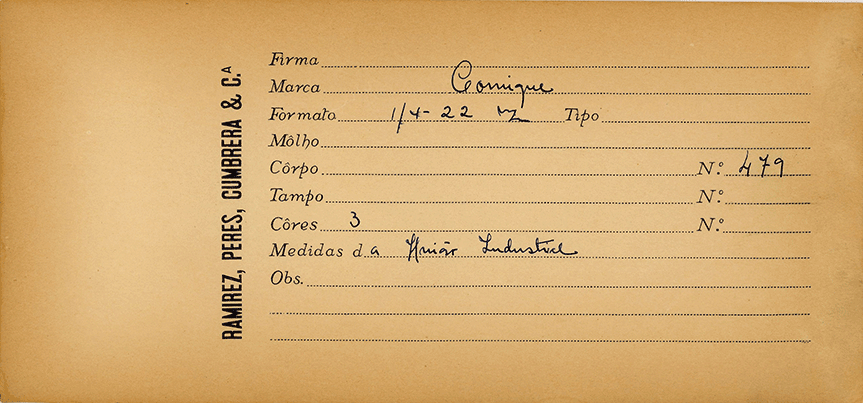 RAMIREZ, PERES, CUMBRERA & C.A
Firma
Marca Comique
Formato 1/4-22 Tipo
Môlho
Côrpo N.º 479
Tampo N.º
Côres 3 N.º
Medidas da União Industrial
Obs.